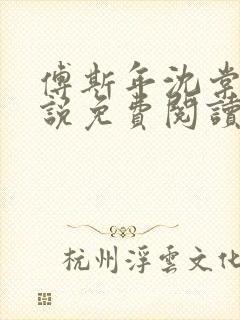 傅斯年沈棠
說免費閱讀
杭州浮雲文化